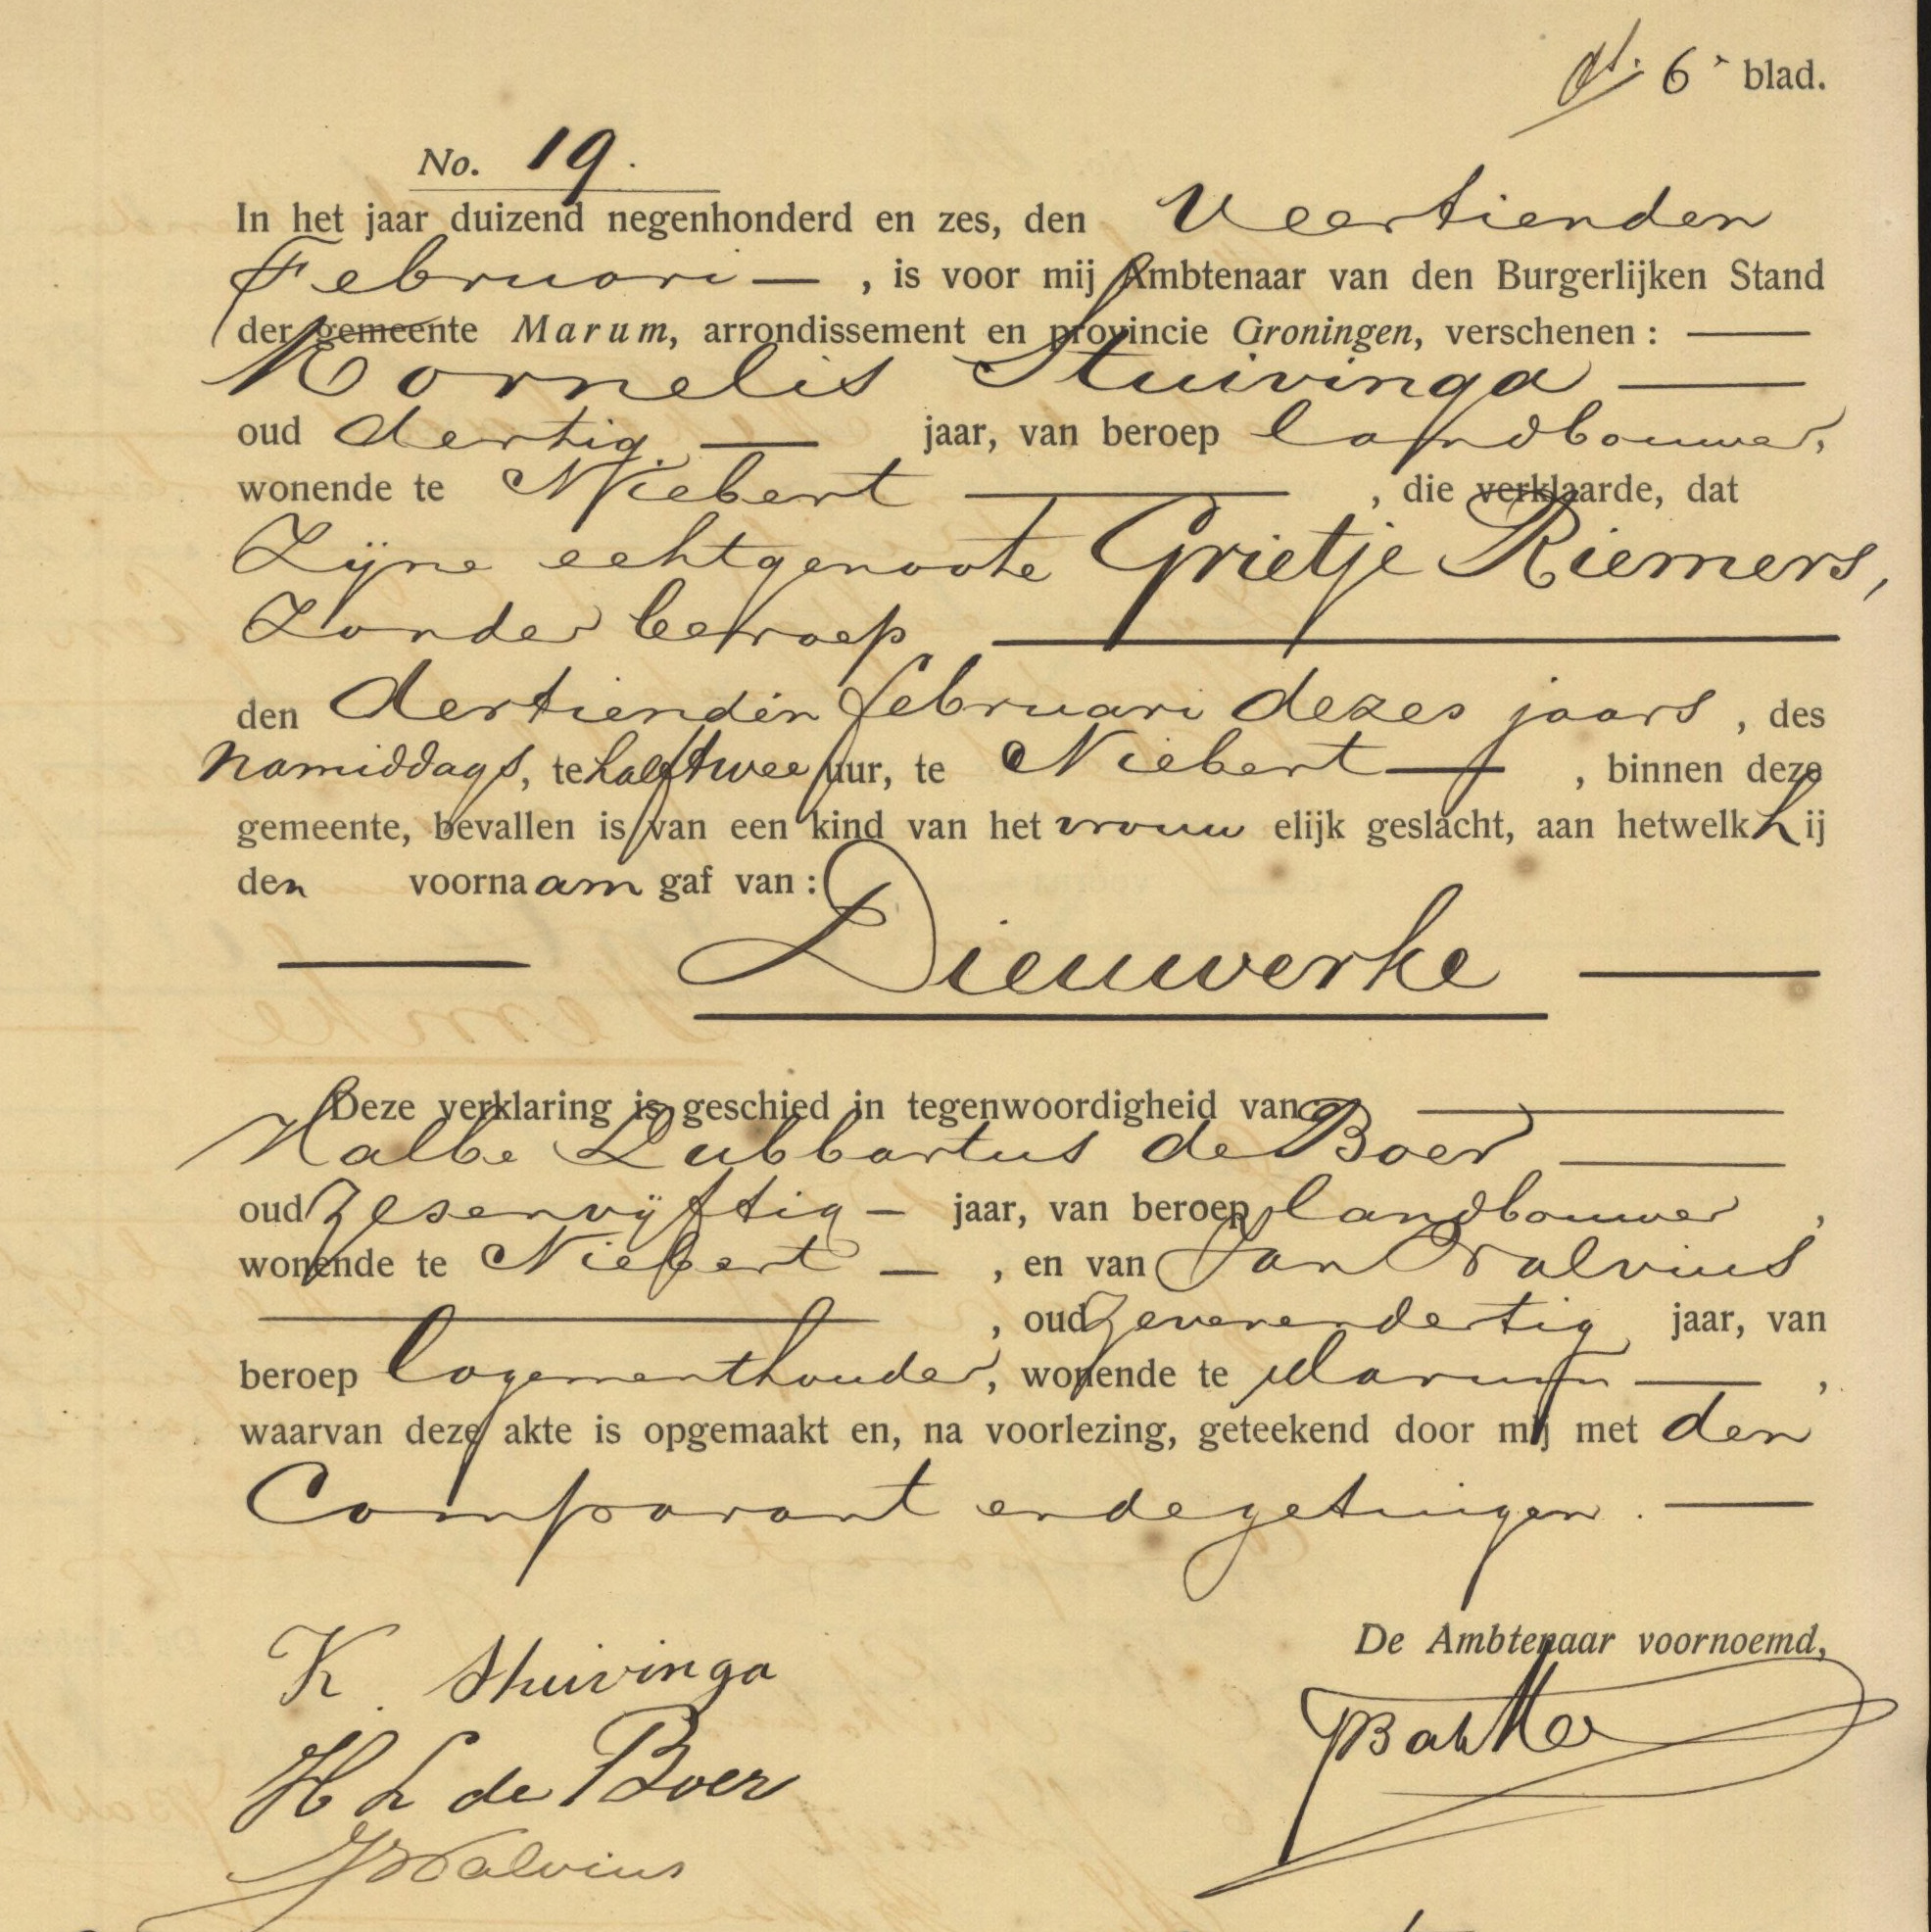 6e blad.
No. 19.
In het jaar duizend negenhonderd en zes, den Veertienden
Februari — , is voor mij Ambtenaar van den Burgerlijken Stand
der gemeente Marum, arrondissement en provincie Groningen, verschenen : —
Kornelis Stuivinga —
oud dertig — jaar, van beroep landbouwer,
wonende te Niebert — , die verklaarde, dat
Zijne echtgenoote Grietje Riemers,
Zonder beroep —
den dertienden februari dezes jaars , des
namiddags, te half twee uur, te Niebert — , binnen deze
gemeente, bevallen is van een kind van het vrouwelijk geslacht, aan hetwelk hij
den voornaam gaf van :
— Dieuwerke —
Deze verklaring is geschied in tegenwoordigheid van : —
Halbe Lubbartus de Boer —
oud zesenvijftig — jaar, van beroep landbouwer ,
wonende te Niebert — , en van Jan Walvius
— , oud zevenendertig jaar, van
beroep logementhouder, wonende te Marum — ,
waarvan deze akte is opgemaakt en, na voorlezing, geteekend door mij met den
Comparant en de getuigen . —
De Ambtenaar voornoemd,
K. Stuivinga
H L de Boer
JWalvius